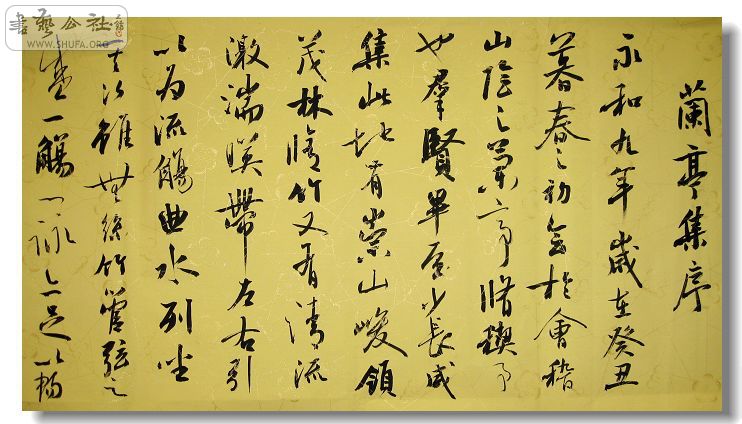 書藝公社
WWW.SHUFA.ORG
蘭亭集序
永和九年歲在癸丑
暮春之初会於會稽
山陰之蘭亭脩稧事
也羣賢畢至少長咸
集此地有崇山峻領
茂林脩竹又有清流
激湍暎帶左右引
以為流觴曲水列坐
其次雖無絲竹管弦之
盛一觴一詠亦足以暢